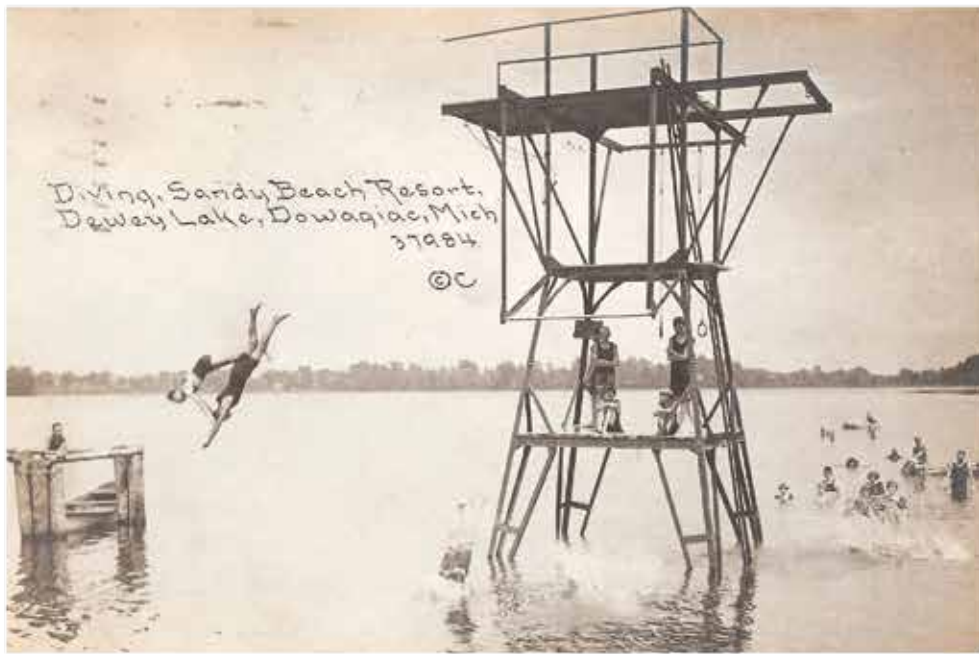 Diving, Sandy Beach Resort,
Dewey Lake, Dowagiac, Mich
37984
©C